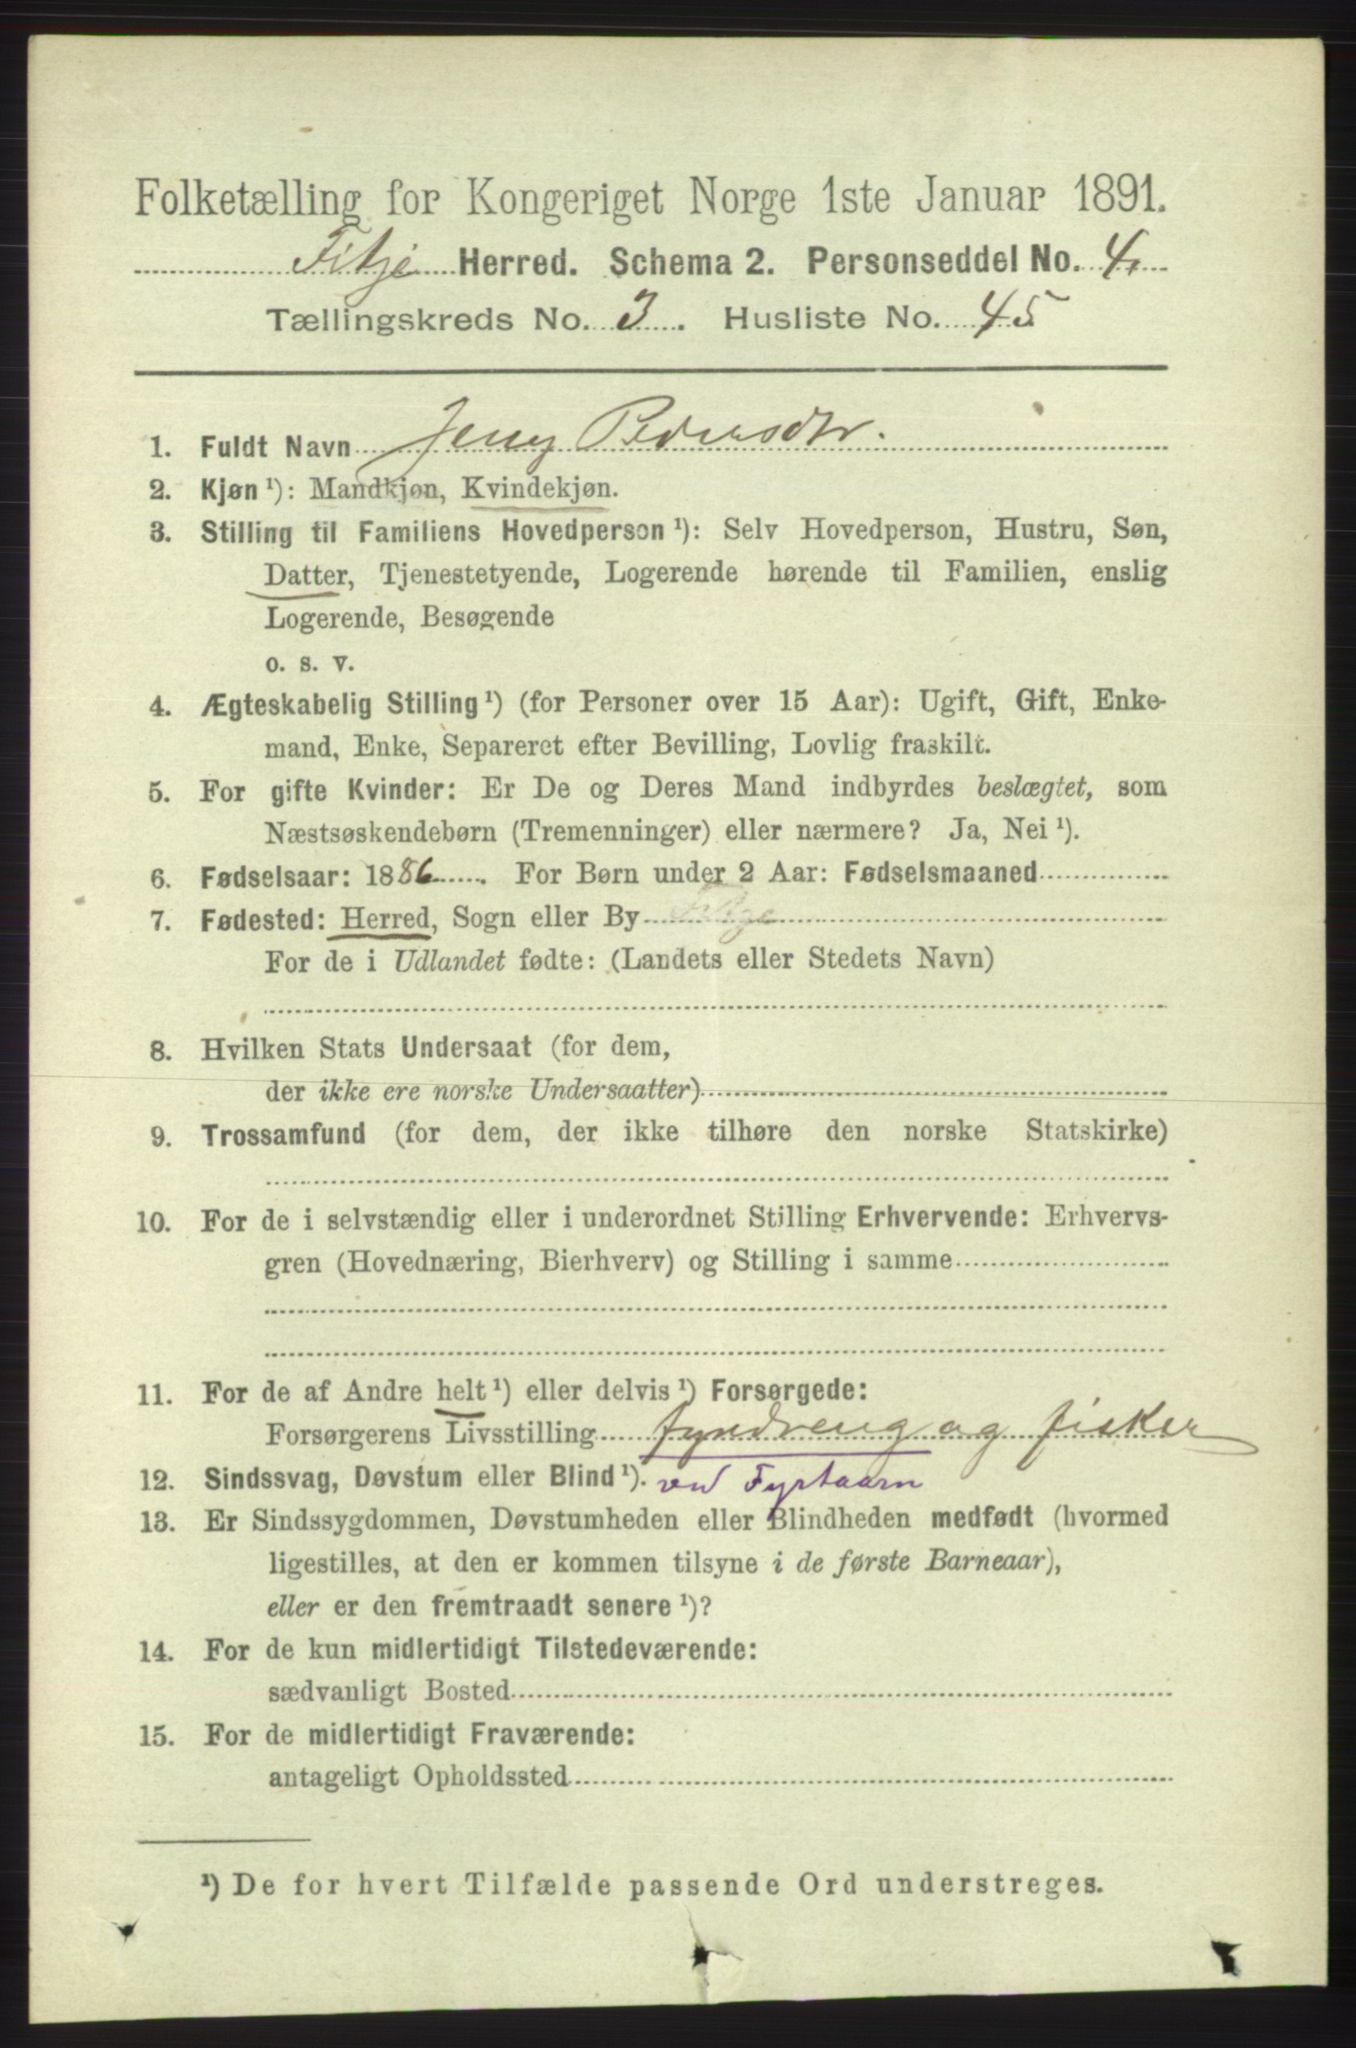 Folketælling for Kongeriget Norge 1ste Januar 1891.
Fitje Herred. Schema 2. Personseddel No. 4.
Tællingskreds No. 3. Husliste No. 45
1. Fuldt Navn Jeny Pedersdtr.
2. Kjøn ¹): Mandkjøn, Kvindekjøn.
3. Stilling til Familiens Hovedperson ¹): Selv Hovedperson, Hustru, Søn,
Datter, Tjenestetyende, Logerende hørende til Familien, enslig
Logerende, Besøgende
o. s. v.
4. Ægteskabelig Stilling ¹) (for Personer over 15 Aar): Ugift, Gift, Enke-
mand, Enke, Separeret efter Bevilling, Lovlig fraskilt.
5. For gifte Kvinder: Er De og Deres Mand indbyrdes beslægtet, som
Næstsøskendebørn (Tremenninger) eller nærmere? Ja, Nei ¹).
6. Fødselsaar: 1886. For Børn under 2 Aar: Fødselsmaaned
7. Fødested: Herred, Sogn eller By Fitje
For de i Udlandet fødte: (Landets eller Stedets Navn)
8. Hvilken Stats Undersaat (for dem,
der ikke ere norske Undersaatter)
9. Trossamfund (for dem, der ikke tilhøre den norske Statskirke)
10. For de i selvstændig eller i underordnet Stilling Erhvervende: Erhvervs-
gren (Hovednæring, Bierhverv) og Stilling i samme
11. For de af Andre helt ¹) eller delvis ¹) Forsørgede:
Forsørgerens Livsstilling fyrdreng og fisker
12. Sindssvag, Døvstum eller Blind ¹). ved Fyrtaarn
13. Er Sindssygdommen, Døvstumheden eller Blindheden medfødt (hvormed
ligestilles, at den er kommen tilsyne i de første Barneaar),
eller er den fremtraadt senere ¹)?
14. For de kun midlertidigt Tilstedeværende:
sædvanligt Bosted
15. For de midlertidigt Fraværende:
antageligt Opholdssted
¹) De for hvert Tilfælde passende Ord understreges.